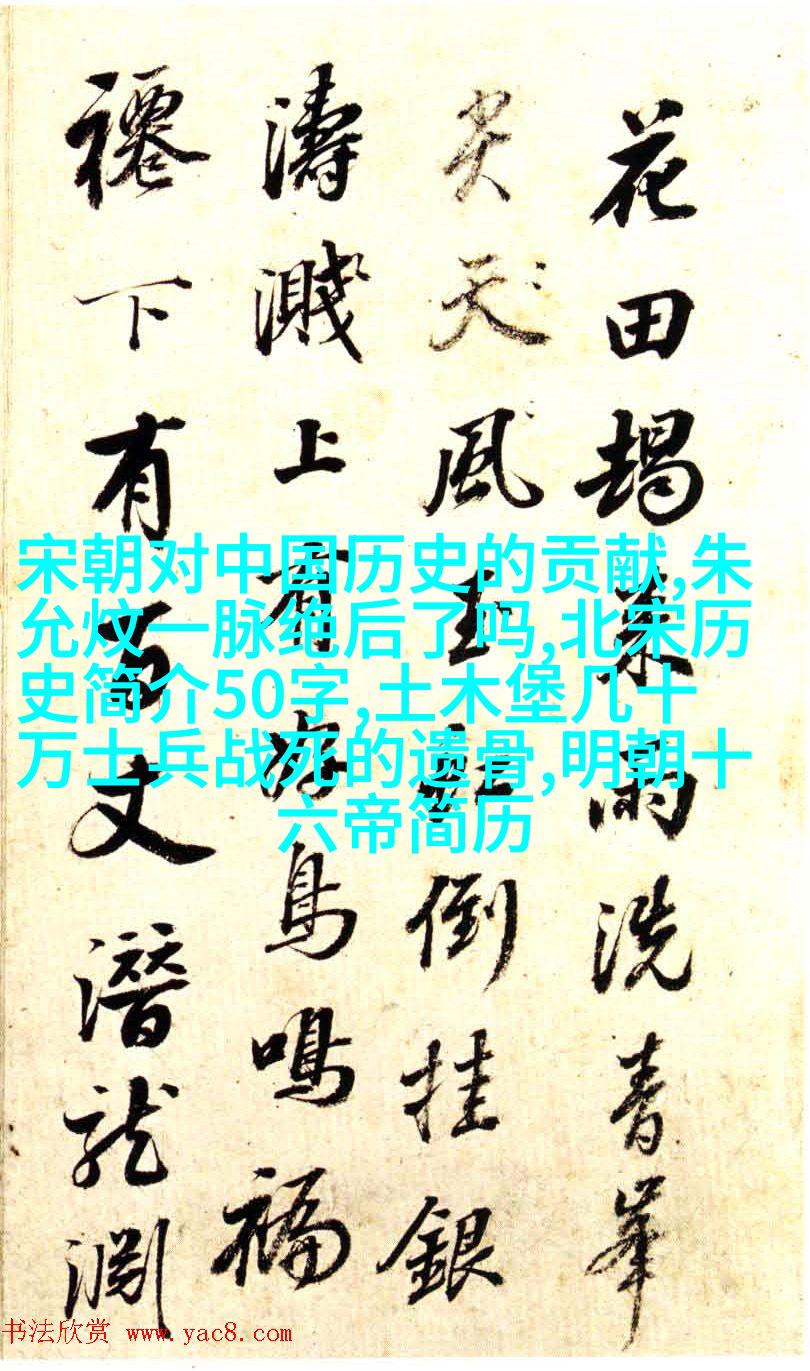 花田來雨洗青峯
尖天風玉龍倒挂銀
濤濺上有游鳥鳴福
下有百丈潛龍淵
宋朝对中国历史的贡献,朱
允炆一脉绝后了吗,北宋历
史简介50字,土木堡几十
万士兵战死的遗骨,明朝十
六帝简历
书法欣赏 www.yac8.com